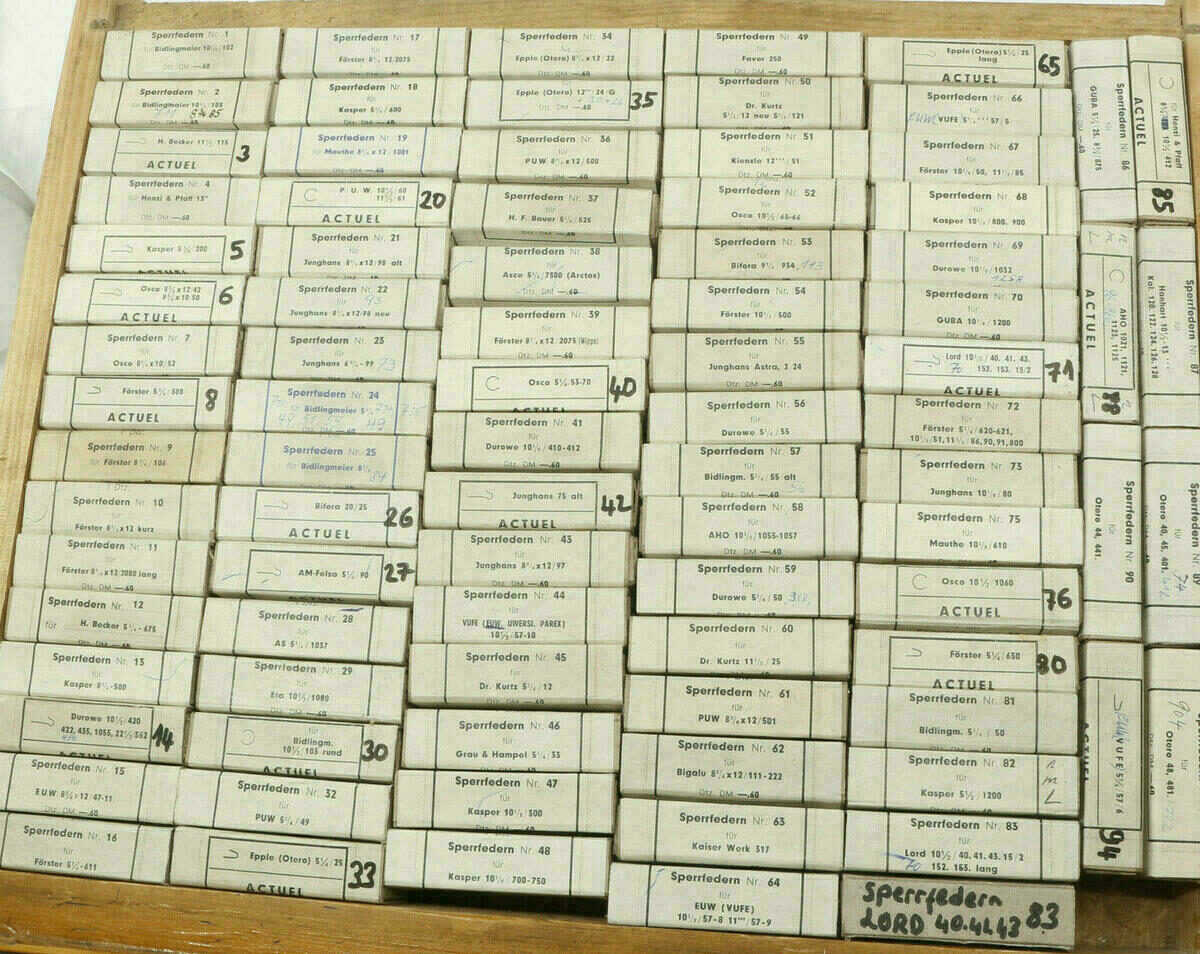 Sperrfedern Nr. 1
für
Bidlingmaier 10½/102
Dtz. DM —.60
Sperrfedern Nr. 2
für
Bidlingmaier
H. Becker 11½ 115
ACTUEL
3
Sperrfedern Nr. 4
für Henzi & Pfaff 13"
Dtz. DM —.60
Kasper 5½/200
ACTUEL
5
Osco 8¾x12/42
8¾x10/50
ACTUEL
6
Sperrfedern Nr. 7
für
Osco 8¾x10/52
Förster 5½/508
ACTUEL
8
Sperrfedern Nr. 9
für Förster 8¾/106
Sperrfedern Nr. 10
für
Förster 8¾x12 kurz
Sperrfedern Nr. 11
für
Förster 8¾x12 2080 lang
Dtz. DM —.60
Sperrfedern Nr. 12
für H. Becker 5½-675
Sperrfedern Nr. 13
für
Kasper 8¾-500
Durowe 10½/420
422, 435, 1055, 22½/562
ACTUEL
14
Sperrfedern Nr. 15
für
EUW 8¾x12/47-11
Dtz. DM —.60
Sperrfedern Nr. 16
für
Förster 5½-611
Sperrfedern Nr. 17
für
Förster 8¾ 12/2075
Dtz. DM —.60
Sperrfedern Nr. 18
für
Kasper 5½/600
Sperrfedern Nr. 19
für
Mauthe 8¾x12 1081
Dtz. DM —.60
P. U. W. 10½/60
11½/61
ACTUEL
20
Sperrfedern Nr. 21
für
Junghans 8¾x12/98 alt
Sperrfedern Nr. 22
für 93
Junghans 8¾x12/98 neu
Sperrfedern Nr. 23
für
Junghans 6¾-99 93
Sperrfedern Nr. 24
für
Bidlingmeier 5½
Sperrfedern Nr. 25
für
Bidlingmeier 8¾
84
Bifora 20/25
ACTUEL
26
AM-Felsa 5½ 90
ACTUEL
27
Sperrfedern Nr. 28
für
AS 5½/1057
Sperrfedern Nr. 29
für
Eta 10½/1080
Dtz. DM —.60
für
Bidlingm.
10½/105 rund
ACTUEL
30
Sperrfedern Nr. 32
für
PUW 5½/49
Epple (Otero) 5½/25
ACTUEL
33
Sperrfedern Nr. 34
für
Epple (Otero) 8¾x12/22
Dtz. DM —.60
Epple (Otero) 12''' 24/G
Dtz. DM —.60
35
Sperrfedern Nr. 36
für
PUW 8¾x12/500
Dtz. DM —.60
Sperrfedern Nr. 37
für
H. F. Bauer 5½/525
Dtz. DM —.60
Sperrfedern Nr. 38
für
Asco 5½/7500 (Arctos)
Dtz. DM —.60
Sperrfedern Nr. 39
für
Förster 8¾x12/2075 (Wipps)
Dtz. DM —.60
Osco 5½/53-70
ACTUEL
40
Sperrfedern Nr. 41
für
Durowe 10½/410-412
Dtz. DM —.60
Junghans 75 alt
ACTUEL
42
Sperrfedern Nr. 43
für
Junghans 8¾x12/97
Dtz. DM —.60
Sperrfedern Nr. 44
für
VUFE (EUW, UWERSI, PAREX)
10½/57-10
Sperrfedern Nr. 45
für
Dr. Kurtz 5½/12
Sperrfedern Nr. 46
für
Grau & Hampel 5½/53
Sperrfedern Nr. 47
für
Kasper 10½/500
Dtz. DM —.60
Sperrfedern Nr. 48
für
Kasper 10½/700-750
Sperrfedern Nr. 49
für
Favor 250
Dtz. DM —.60
Sperrfedern Nr. 50
für
Dr. Kurtz
5½/12 neu 5½/121
Sperrfedern Nr. 51
für
Kienzle 12'''/51
Dtz. DM —.60
Sperrfedern Nr. 52
für
Osco 10½/65-66
Dtz. DM —.60
Sperrfedern Nr. 53
für
Bifora 9¾ 934
Sperrfedern Nr. 54
für
Förster 10½/500
Sperrfedern Nr. 55
für
Junghans Astra, J 24
Dtz. DM —.60
Sperrfedern Nr. 56
für
Durowe 5½/55
Sperrfedern Nr. 57
für
Bidlingm. 5½/55 alt
Dtz. DM —.60
Sperrfedern Nr. 58
für
AHO 10½/1055-1057
Dtz. DM —.60
Sperrfedern Nr. 59
für
Durowe 5½/50
Sperrfedern Nr. 60
für
Dr. Kurtz 11½/25
Sperrfedern Nr. 61
für
PUW 8¾x12/501
Sperrfedern Nr. 62
für
Bigalu 8¾x12/111-222
Dtz. DM —.60
Sperrfedern Nr. 63
für
Kaiser Werk 517
Sperrfedern Nr. 64
für
EUW (VUFE)
10½/57-8 11'''/57-9
Epple (Otero) 5½/25
lang
ACTUEL
65
Sperrfedern Nr. 66
für
EUW VUFE 5½'''57/5
Sperrfedern Nr. 67
für
Förster 10½/50, 11½/85
Sperrfedern Nr. 68
für
Kasper 10½/800, 900
Sperrfedern Nr. 69
für
Durowe 10½/1032
1258
Sperrfedern Nr. 70
für
GUBA 10½/1200
Dtz. DM —.60
Lord 10½/40. 41. 43.
70 152. 153. 15/2
ACTUEL
71
Sperrfedern Nr. 72
für
Förster 5½/620-621,
10½/51, 11½/86, 90, 91, 800
Sperrfedern Nr. 73
für
Junghans 10½/80
Sperrfedern Nr. 75
für
Mauthe 10½/610
Osco 10½ 1060
ACTUEL
76
Förster 5½/650
ACTUEL
80
Sperrfedern Nr. 81
für
Bidlingm. 5½/50
Dtz. DM —.60
Sperrfedern Nr. 82
für
Kasper 5½/1200
Dtz. DM —.60
n
m
L
Sperrfedern Nr. 83
für
Lord 10½/40. 41. 43. 15/2
70 152. 163. lang
Sperrfedern
LORD 40.41.43 83
Sperrfedern Nr. 86
für
GUBA 5½/25, 8¾/875
Dtz. DM —.60
für Henzi & Pfaff
10½/412
ACTUEL
85
AHO 1021, 1121,
1123, 1125
ACTUEL
88
Sperrfedern Nr. 87
für
Hanhart 10½-15
Kal. 120. 122. 124. 126. 128
Sperrfedern Nr. 90
für
Otero 44, 441.
Sperrfedern Nr. 89
für 74
Otero 40, 45, 401,
VUFE 5½/57/6
ACTUEL
94
904
für
Otero 48, 481.